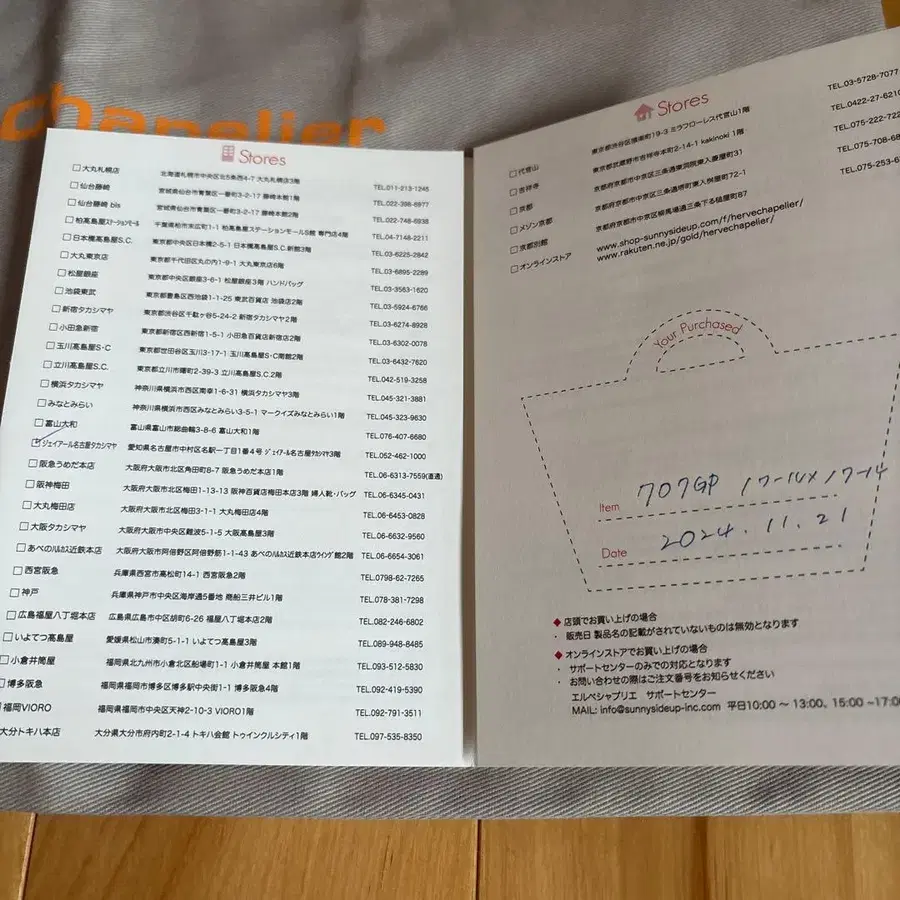 chapelier
Stores
大丸札幌店 北海道札幌市中央区北5条西4-7 大丸札幌店3階 TEL.011-213-1245
仙台藤崎 宮城県仙台市青葉区一番町3-2-17 藤崎本館1階 TEL.022-398-6977
仙台藤崎 bis 宮城県仙台市青葉区一番町3-2-17 藤崎本館2階 TEL.022-748-6938
柏高島屋ステーションモール 千葉県柏市末広町1-1 柏高島屋ステーションモールS館 専門店4階 TEL.04-7148-2211
日本橋高島屋S.C. 東京都中央区日本橋2-5-1 日本橋高島屋S.C.新館3階 TEL.03-6225-2842
大丸東京店 東京都千代田区丸の内1-9-1 大丸東京店6階 TEL.03-6895-2289
松屋銀座 東京都中央区銀座3-6-1 松屋銀座3階 ハンドバッグ TEL.03-3563-1620
池袋東武 東京都豊島区西池袋1-1-25 東武百貨店 池袋店2階 TEL.03-5924-6766
新宿タカシマヤ 東京都渋谷区千駄ヶ谷5-24-2 新宿タカシマヤ2階 TEL.03-6274-8928
小田急新宿 東京都新宿区西新宿1-5-1 小田急百貨店新宿店2階 TEL.03-6302-0078
玉川高島屋S・C 東京都世田谷区玉川3-17-1 玉川高島屋S・C南館2階 TEL.03-6432-7620
立川高島屋S.C. 東京都立川市曙町2-39-3 立川高島屋S.C.2階 TEL.042-519-3258
横浜タカシマヤ 神奈川県横浜市西区南幸1-6-31 横浜タカシマヤ3階 TEL.045-321-3881
みなとみらい 神奈川県横浜市西区みなとみらい3-5-1 マークイズみなとみらい1階 TEL.045-323-9630
富山大和 富山県富山市総曲輪3-8-6 富山大和1階 TEL.076-407-6680
ジェイアール名古屋タカシマヤ 愛知県名古屋市中村区名駅一丁目1番4号 ジェイアール名古屋タカシマヤ3階 TEL.052-462-1000
阪急うめだ本店 大阪府大阪市北区角田町8-7 阪急うめだ本店1階 TEL.06-6313-7559(直通)
阪神梅田 大阪府大阪市北区梅田1-13-13 阪神百貨店梅田本店3階 婦人靴・バッグ TEL.06-6345-0431
大丸梅田店 大阪府大阪市北区梅田3-1-1 大丸梅田店4階 TEL.06-6453-0828
大阪タカシマヤ 大阪府大阪市中央区難波5-1-5 大阪高島屋3階 TEL.06-6632-9560
あべのハルカス近鉄本店 大阪府大阪市阿倍野区阿倍野筋1-1-43 あべのハルカス近鉄本店ウイング館2階 TEL.06-6654-3061
西宮阪急 兵庫県西宮市高松町14-1 西宮阪急2階 TEL.0798-62-7265
神戸 兵庫県神戸市中央区海岸通5番地 商船三井ビル1階 TEL.078-381-7298
広島福屋八丁堀本店 広島県広島市中区胡町6-26 福屋八丁堀本店2階 TEL.082-246-6802
いよてつ高島屋 愛媛県松山市湊町5-1-1 いよてつ高島屋3階 TEL.089-948-8485
小倉井筒屋 福岡県北九州市小倉北区船場町1-1 小倉井筒屋 本館1階 TEL.093-512-5830
博多阪急 福岡県福岡市博多区博多駅中央街1-1 博多阪急4階 TEL.092-419-5390
福岡VIORO 福岡県福岡市中央区天神2-10-3 VIORO1階 TEL.092-791-3511
大分トキハ本店 大分県大分市府内町2-1-4 トキハ会館 トゥインクルシティ1階 TEL.097-535-8350
Stores
代官山 東京都渋谷区猿楽町19-3 ミラフローレス代官山1階 TEL.03-5728-7077
吉祥寺 東京都武蔵野市吉祥寺本町2-14-1 kakinoki 1階 TEL.0422-27-6210
京都 京都府京都市中京区三条通東洞院東入菱屋町31 TEL.075-222-722
メゾン京都 京都府京都市中京区三条通堺町東入桝屋町72-1 TEL.075-708-68
京都別館 京都府京都市中京区柳馬場通三条下る槌屋町87 TEL.075-253-6
オンラインストア www.shop-sunnysideup.com/f/hervechapelier/
www.rakuten.ne.jp/gold/hervechapelier/
Your Purchased
Item 707GP ノワール×ノワール
Date 2024.11.21
◆ 店頭でお買い上げの場合
・ 販売日 製品名の記載がされていないものは無効となります
◆ オンラインストアでお買い上げの場合
・ サポートセンターのみでの対応となります
・ お問い合わせの際はご注文番号をお知らせください
エルベシャプリエ サポートセンター
MAIL: info@sunnysideup-inc.com 平日10:00 〜 13:00、15:00 〜17:00